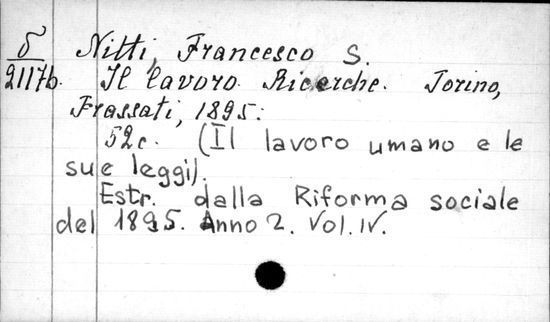 δ Nitti, Francesco S.
2117b. Il lavoro. Ricerche. Torino,
Frassati, 1895:
52c. (Il lavoro umano e le
sue leggi).
Estr. dalla Riforma sociale
del 1895. Anno 2. Vol. IV.